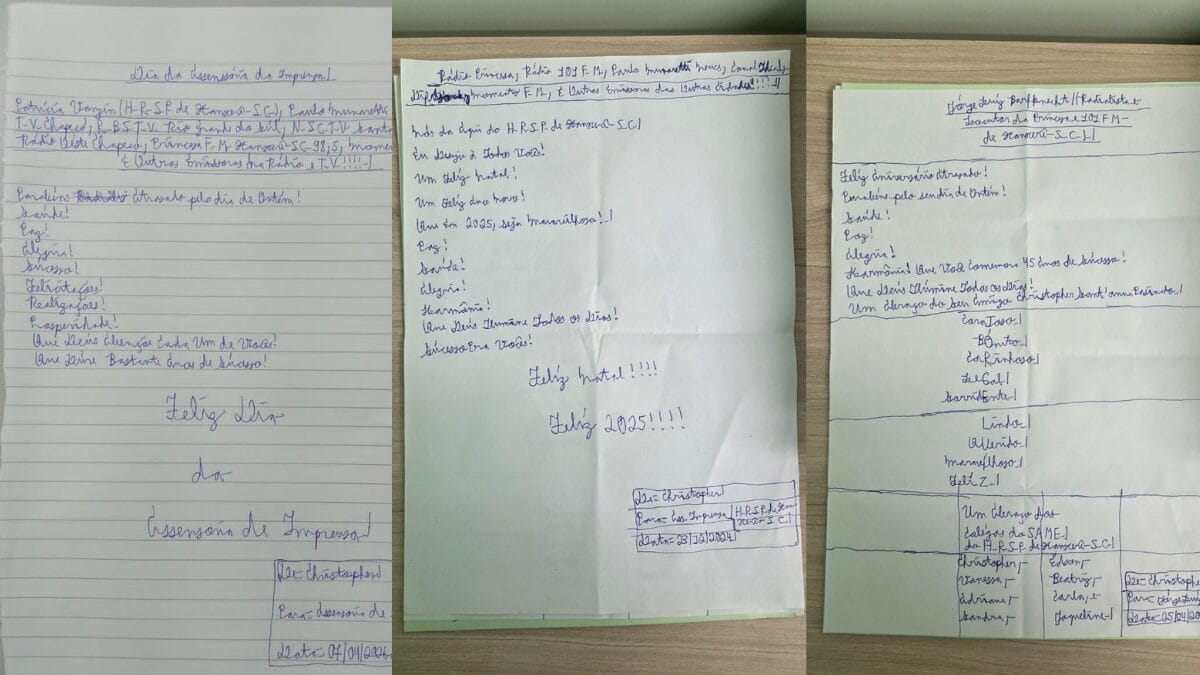 Dia da Assessoria da Imprensa!
Patrícia Vanzin (H.R.S.P. de Xanxerê-S.C.), Paulo Munaretti
T.V. Chapecó, R.B.S.T.V. Rio grande do Sul, N.S.C.T.V. Santa
Rádio Oeste Chapecó, Princesa F.M. Xanxerê-SC-98,5, Momen
E Outras Emissoras da Rádio e T.V.!!!!
Parabéns Atrasado pelo dia de Ontém!
Saúde!
Paz!
Alegria!
Sucesso!
Felicitações!
Realizações!
Prosperidade!
Que Deus Abençoe Cada Um de Vocês!
Que Dure Bastante Anos de Sucesso!
Feliz Dia
da
Assessoria de Imprensa!
De=Christopher
Para=Assessoria de
Data=07/04/202
Rádio Princesa, Rádio 101 F.M., Paulo Munaretti Canal Ideal,
Momento F.M., E Outras Emissoras das Outras Cidades!!!!
Nós da Equipe do H.R.S.P. de Xanxerê-S.C.!
Eu Desejo à Todos Vocês!
Um Feliz Natal!
Um Feliz Ano Novo!
Que Em 2025, seja Maravilhoso!
Paz!
Saúde!
Alegria!
Harmônia!
Que Deus Ilumine Todos os Dias!
Sucesso Pra Vocês!
Feliz Natal!!!!
Feliz 2025!!!!
De=Christopher
Para=Ass. Imprensa H.R.S.P. de Xan
xerê-S.C.
Data=23/12/2024
Jorge Luiz Barpknecht // Radialista e
Locutor da Princesa e 101 F.M-
de Xanxerê-S.C.
Feliz Aniversário Atrasado!
Parabéns pelo seu dia de Ontém!
Saúde!
Paz!
Alegria!
Harmônia! Que Você Comemora 45 Anos de Sucesso!
Que Deus Ilumine Todos os Dias!
Um Abraço do Seu Amigo Christopher Sant'anna
CoraJoso
BÔnito
CaRinhoso
LeGal
SorridEnte
Lindo
QUerido
Maravilhoso
FeliZ
Um Abraço dos
Colegas do SAME
do H.R.S.P. de Xanxerê-S.C.
Christopher, Edson,
Vanessa, Beatriz,
Adriane, Carla, e
Sandra, Jaqueline
De=Christophe
Para=Jorge Luiz
Data=25/04/20